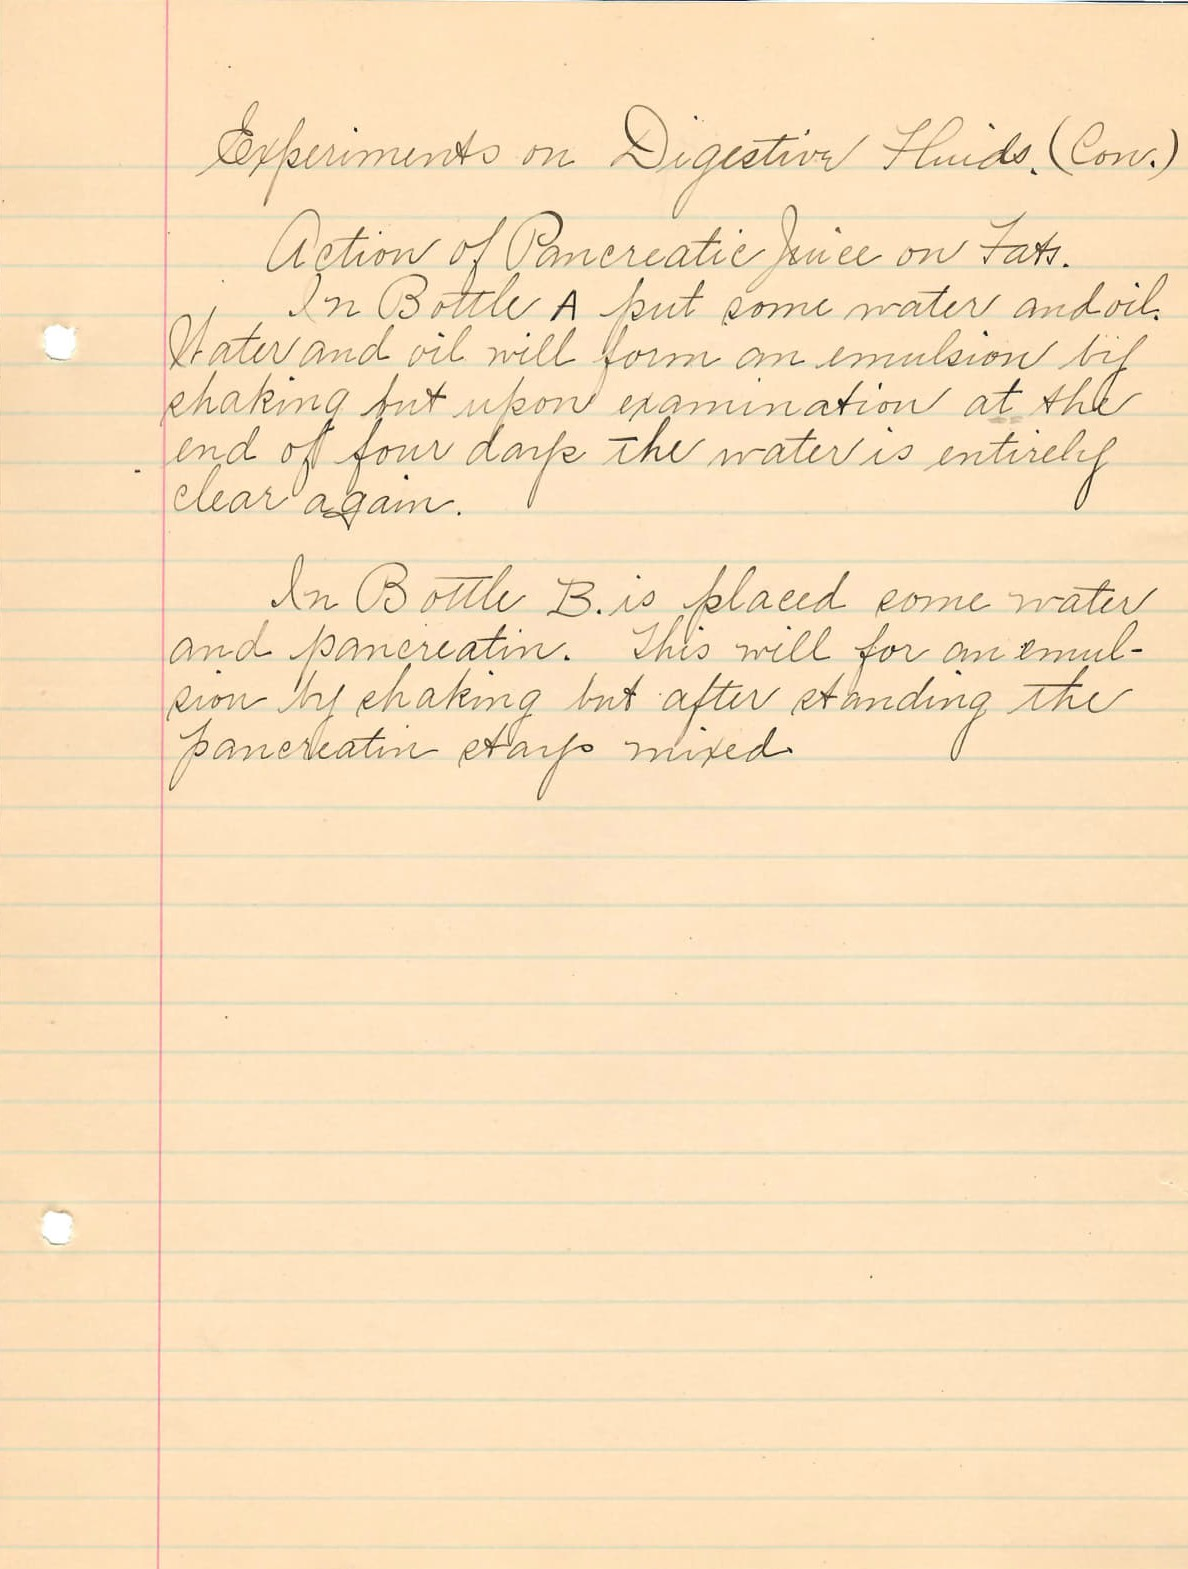 Experiments on Digestive Fluids. (Con.)
Action of Pancreatic Juice on Fats.
In Bottle A put some water and oil.
Water and oil will form an emulsion by
shaking but upon examination at the
end of four days the water is entirely
clear again.
In Bottle B. is placed some water
and pancreatin. This will for an emul-
sion by shaking but after standing the
pancreatin stays mixed.